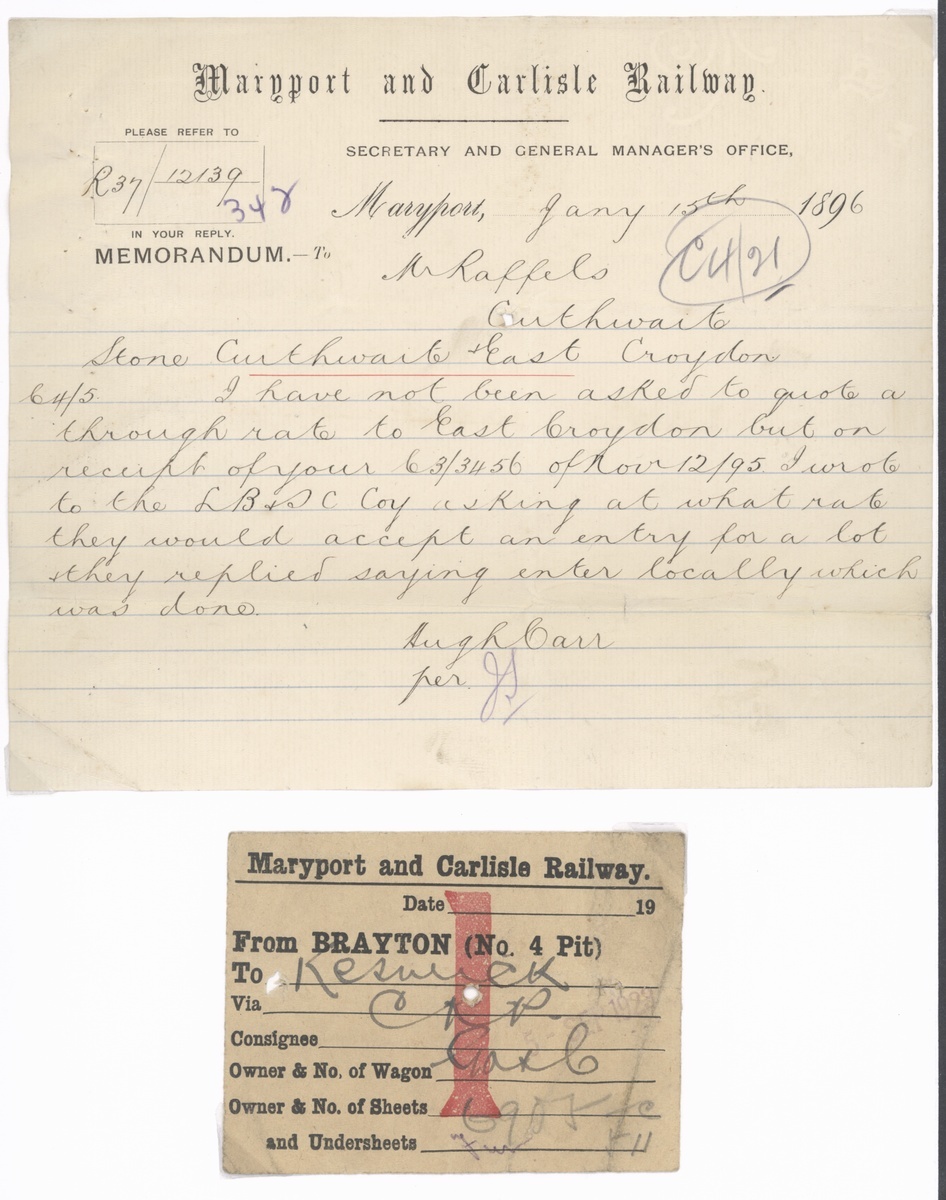 Maryport and Carlisle Railway.
PLEASE REFER TO
R37/12139
348
IN YOUR REPLY.
SECRETARY AND GENERAL MANAGER'S OFFICE,
Maryport, Jany 15th 1896
MEMORANDUM.—To
Mr Raffels
C4/21
Curthwaite
Stone Curthwaite & East Croydon
C4/5 I have not been asked to quote a
through rate to East Croydon but on
receipt of your C3/3456 of Nov 12/95 I wrote
to the LB&SC Coy asking at what rate
they would accept an entry for a lot
& they replied saying enter locally which
was done.
Hugh Carr
per JS
Maryport and Carlisle Railway.
Date 19
From BRAYTON (No. 4 Pit)
To Keswick
Via CKP
Consignee
Owner & No. of Wagon
Owner & No. of Sheets
and Undersheets